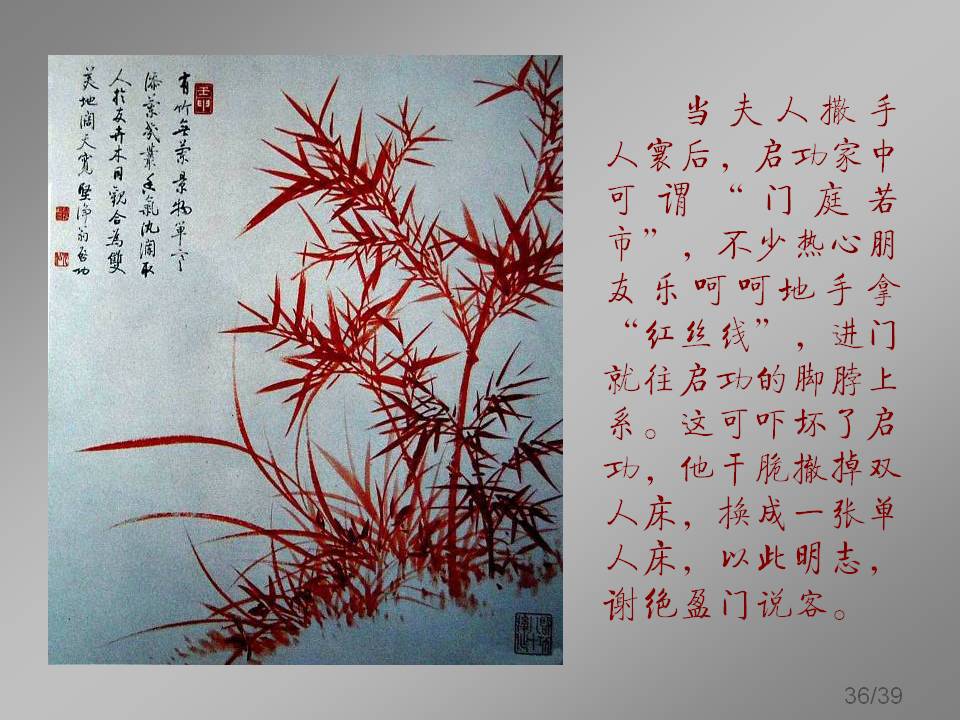 有竹無蘭景物單寒
添蘭幾叢香氣汍瀾取
人於友卉木同觀合為雙
美地闊天寬 堅淨翁啟功
壬申
当夫人撒手
人寰后，启功家中
可谓“门庭若
市”，不少热心朋
友乐呵呵地手拿
“红丝线”，进门
就往启功的脚脖上
系。这可吓坏了启
功，他干脆撤掉双
人床，换成一张单
人床，以此明志，
谢绝盈门说客。
36/39